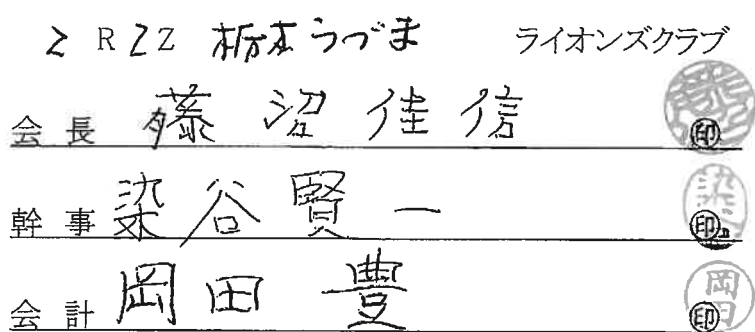 2 R 2 Z 栃木うづま ライオンズクラブ
会長 藤沼佳信 ㊞
幹事 染谷賢一 ㊞
会計 岡田豊 ㊞
岡田